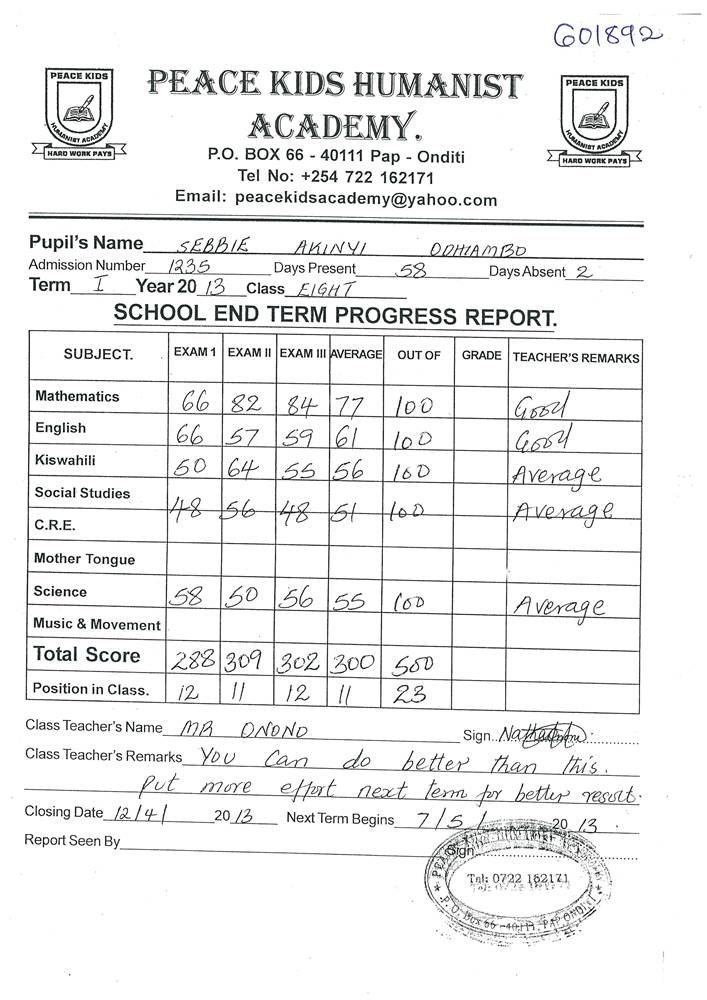 G01892
PEACE KIDS
HUMANIST ACADEMY
HARD WORK PAYS
PEACE KIDS HUMANIST
ACADEMY.
PEACE KIDS
HUMANIST ACADEMY
HARD WORK PAYS
P.O. BOX 66 - 40111 Pap - Onditi
Tel No: +254 722 162171
Email: peacekidsacademy@yahoo.com
Pupil's Name SEBBIE AKINYI ODHIAMBO
Admission Number 1235 Days Present 58 Days Absent 2
Term I Year 20 13 Class EIGHT
SCHOOL END TERM PROGRESS REPORT.
SUBJECT. EXAM 1 EXAM II EXAM III AVERAGE OUT OF GRADE TEACHER'S REMARKS
Mathematics 66 82 84 77 100 Good
English 66 57 59 61 100 Good
Kiswahili 50 64 55 56 100 Average
Social Studies 48 56 48 51 100 Average
C.R.E.
Mother Tongue
Science 58 50 56 55 100 Average
Music & Movement
Total Score 288 309 302 300 500
Position in Class. 12 11 12 11 23
Class Teacher's Name MR ONONO Sign..
Class Teacher's Remarks You can do better than this.
Put more effort next term for better result.
Closing Date 12/4/ 20 13 Next Term Begins 7/5/ 20 13.
Report Seen By Sign
Tel: 0722 162171
P.O. Box 66 - 40111, PAP ONDITI